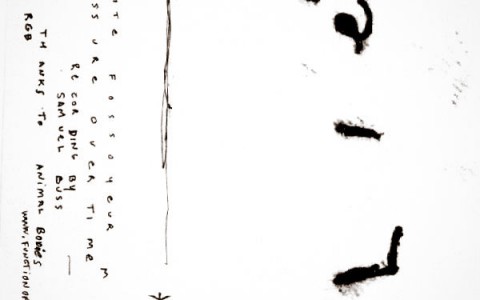 TE FOSSOYEUR M
SS URE OVER TIME
RECORDING BY
SAMUEL BUSS
THANKS TO ANIMAL BODIES
RGB WWW.FUNCTION